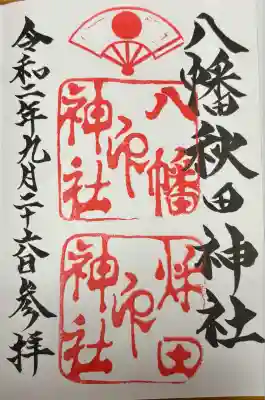 八幡秋田神社
八幡
神社
印
秋田
神社
印
令和二年九月二十六日参拝